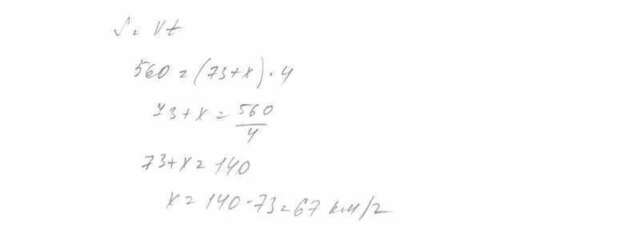 S = Vt
560 = (73+x) · 4
73 + x = 560/4
73+x = 140
x = 140 - 73 = 67 км/г